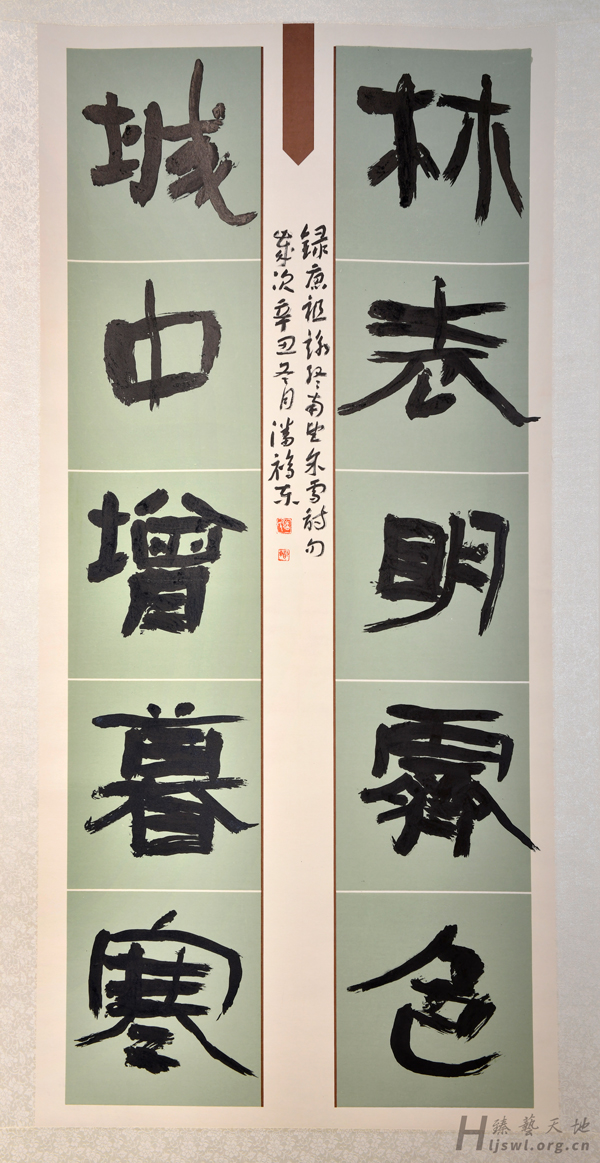 林表明霽色
城中增暮寒
録唐祖詠終南望余雪詩句
歲次辛丑冬月潘
臻藝天地
Hljswl.org.cn